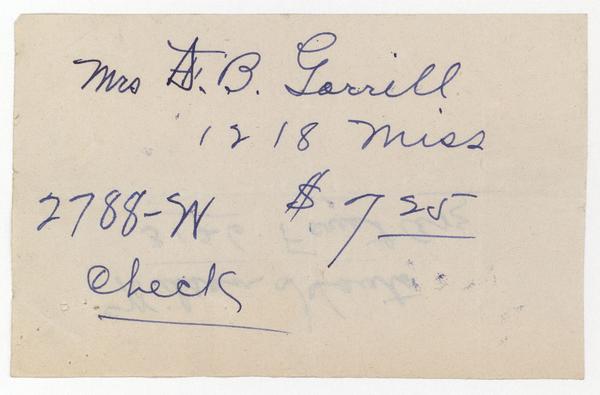 Mrs F. B. Gorrill
1218 Miss
2788-W $7.25
Check